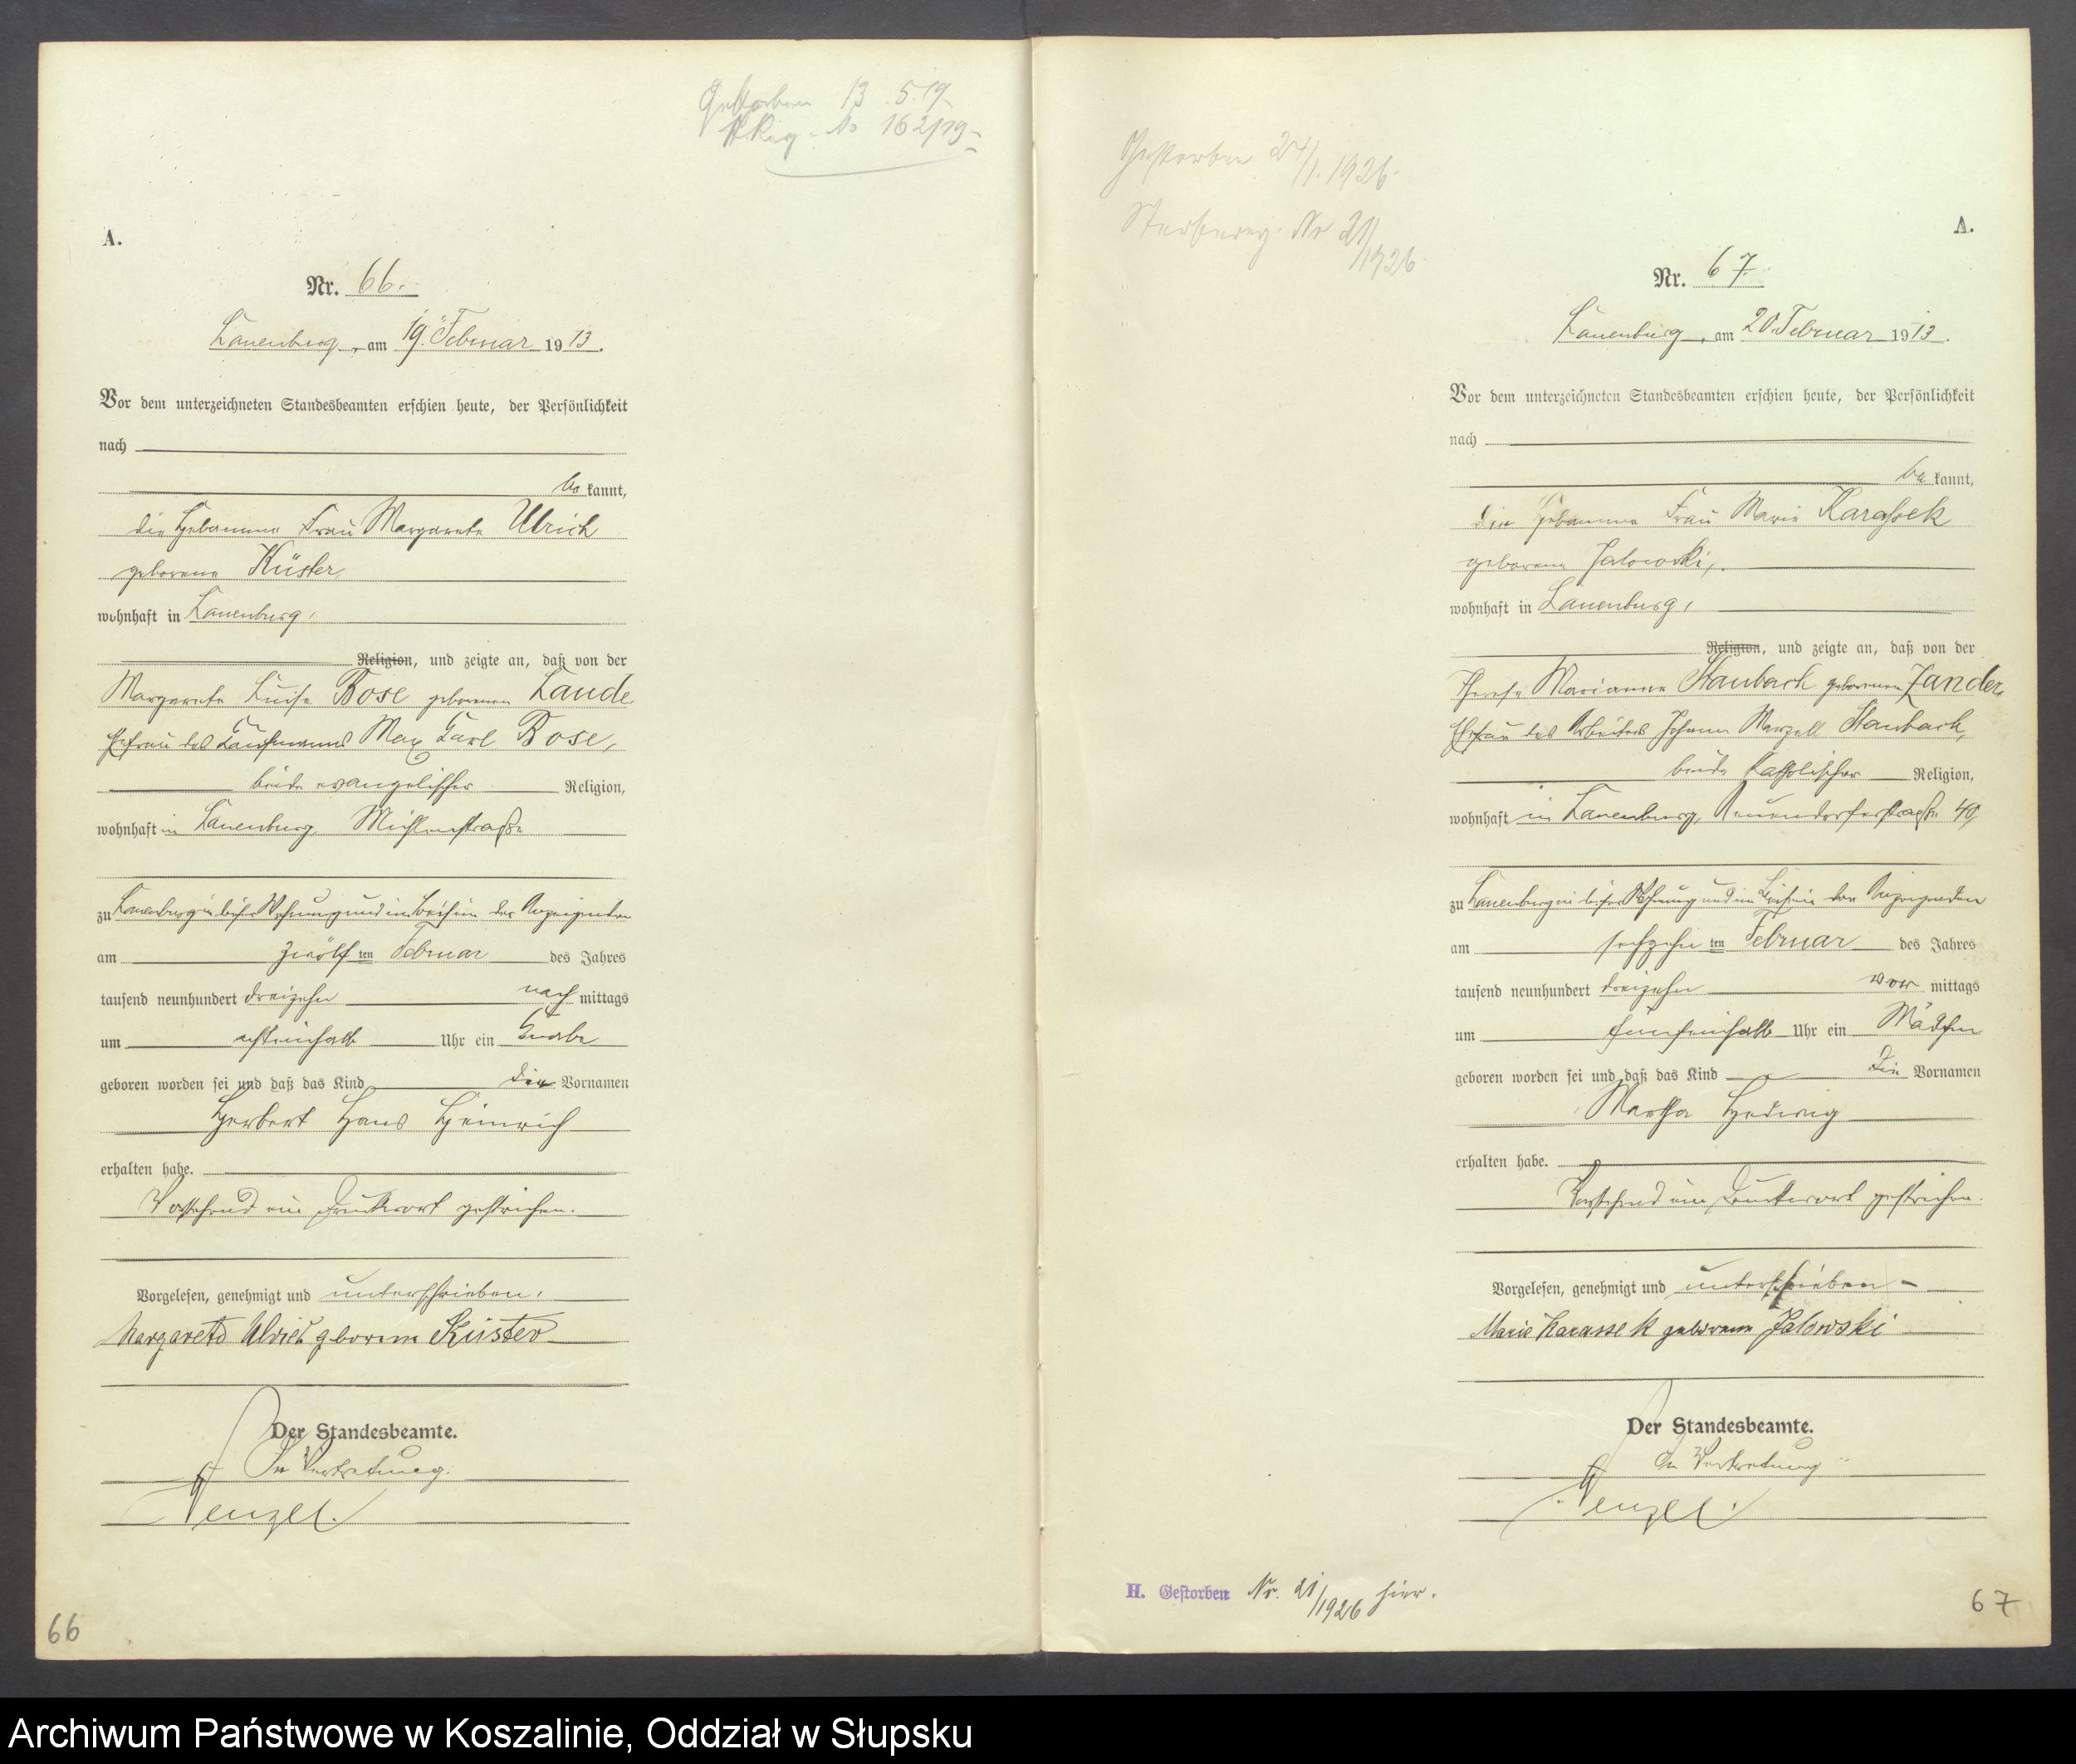 Gestorben 13.5.19
St. Reg. No 162/19
A.
Nr. 66.
Lauenburg, am 19. Februar 1913.
Vor dem unterzeichneten Standesbeamten erschien heute, der Persönlichkeit
nach
be kannt,
die Hebamme Frau Margarete Ulrich
geborene Küster,
wohnhaft in Lauenburg,
Religion, und zeigte an, daß von der
Margarete Luise Bose geborenen Laude,
Ehefrau des Kaufmanns Max Carl Bose,
beide evangelischer Religion,
wohnhaft in Lauenburg Mühlenstraße
zu Lauenburg in dieser Wohnung und im Beisein der Anzeigenden
am zwölf ten Februar des Jahres
tausend neunhundert dreizehn nach mittags
um achteinhalb Uhr ein Knabe
geboren worden sei und daß das Kind die Vornamen
Herbert Hans Heinrich
erhalten habe.
Vorstehend ein Druckwort gestrichen.
Vorgelesen, genehmigt und unterschrieben.
Margarete Ulrich geborene Küster
Der Standesbeamte.
In Vertretung.
Wenzel.
66
Gestorben 24/1. 1926.
Sterbereg. Nr 21/1926
A.
Nr. 67.
Lauenburg, am 20. Februar 1913.
Vor dem unterzeichneten Standesbeamten erschien heute, der Persönlichkeit
nach
be kannt,
die Hebamme Frau Marie Karassek
geborene Jalowski,
wohnhaft in Lauenburg,
Religion, und zeigte an, daß von der
Marianne Staubach geborenen Zander,
Ehefrau des Arbeiters Johann Staubach,
beide katholischer Religion,
wohnhaft in Lauenburg, Neuendorferstraße 40,
zu Lauenburg in dieser Wohnung und im Beisein der Anzeigenden
am sechzehn ten Februar des Jahres
tausend neunhundert dreizehn vor mittags
um fünfeinhalb Uhr ein Mädchen
geboren worden sei und daß das Kind die Vornamen
Martha Hedwig
erhalten habe.
Vorstehend ein Druckwort gestrichen.
Vorgelesen, genehmigt und unterschrieben
Marie Karassek geborene Jalowski
Der Standesbeamte.
In Vertretung
Wenzel.
H. Gestorben Nr. 21/1926 hier.
67
Archiwum Państwowe w Koszalinie, Oddział w Słupsku